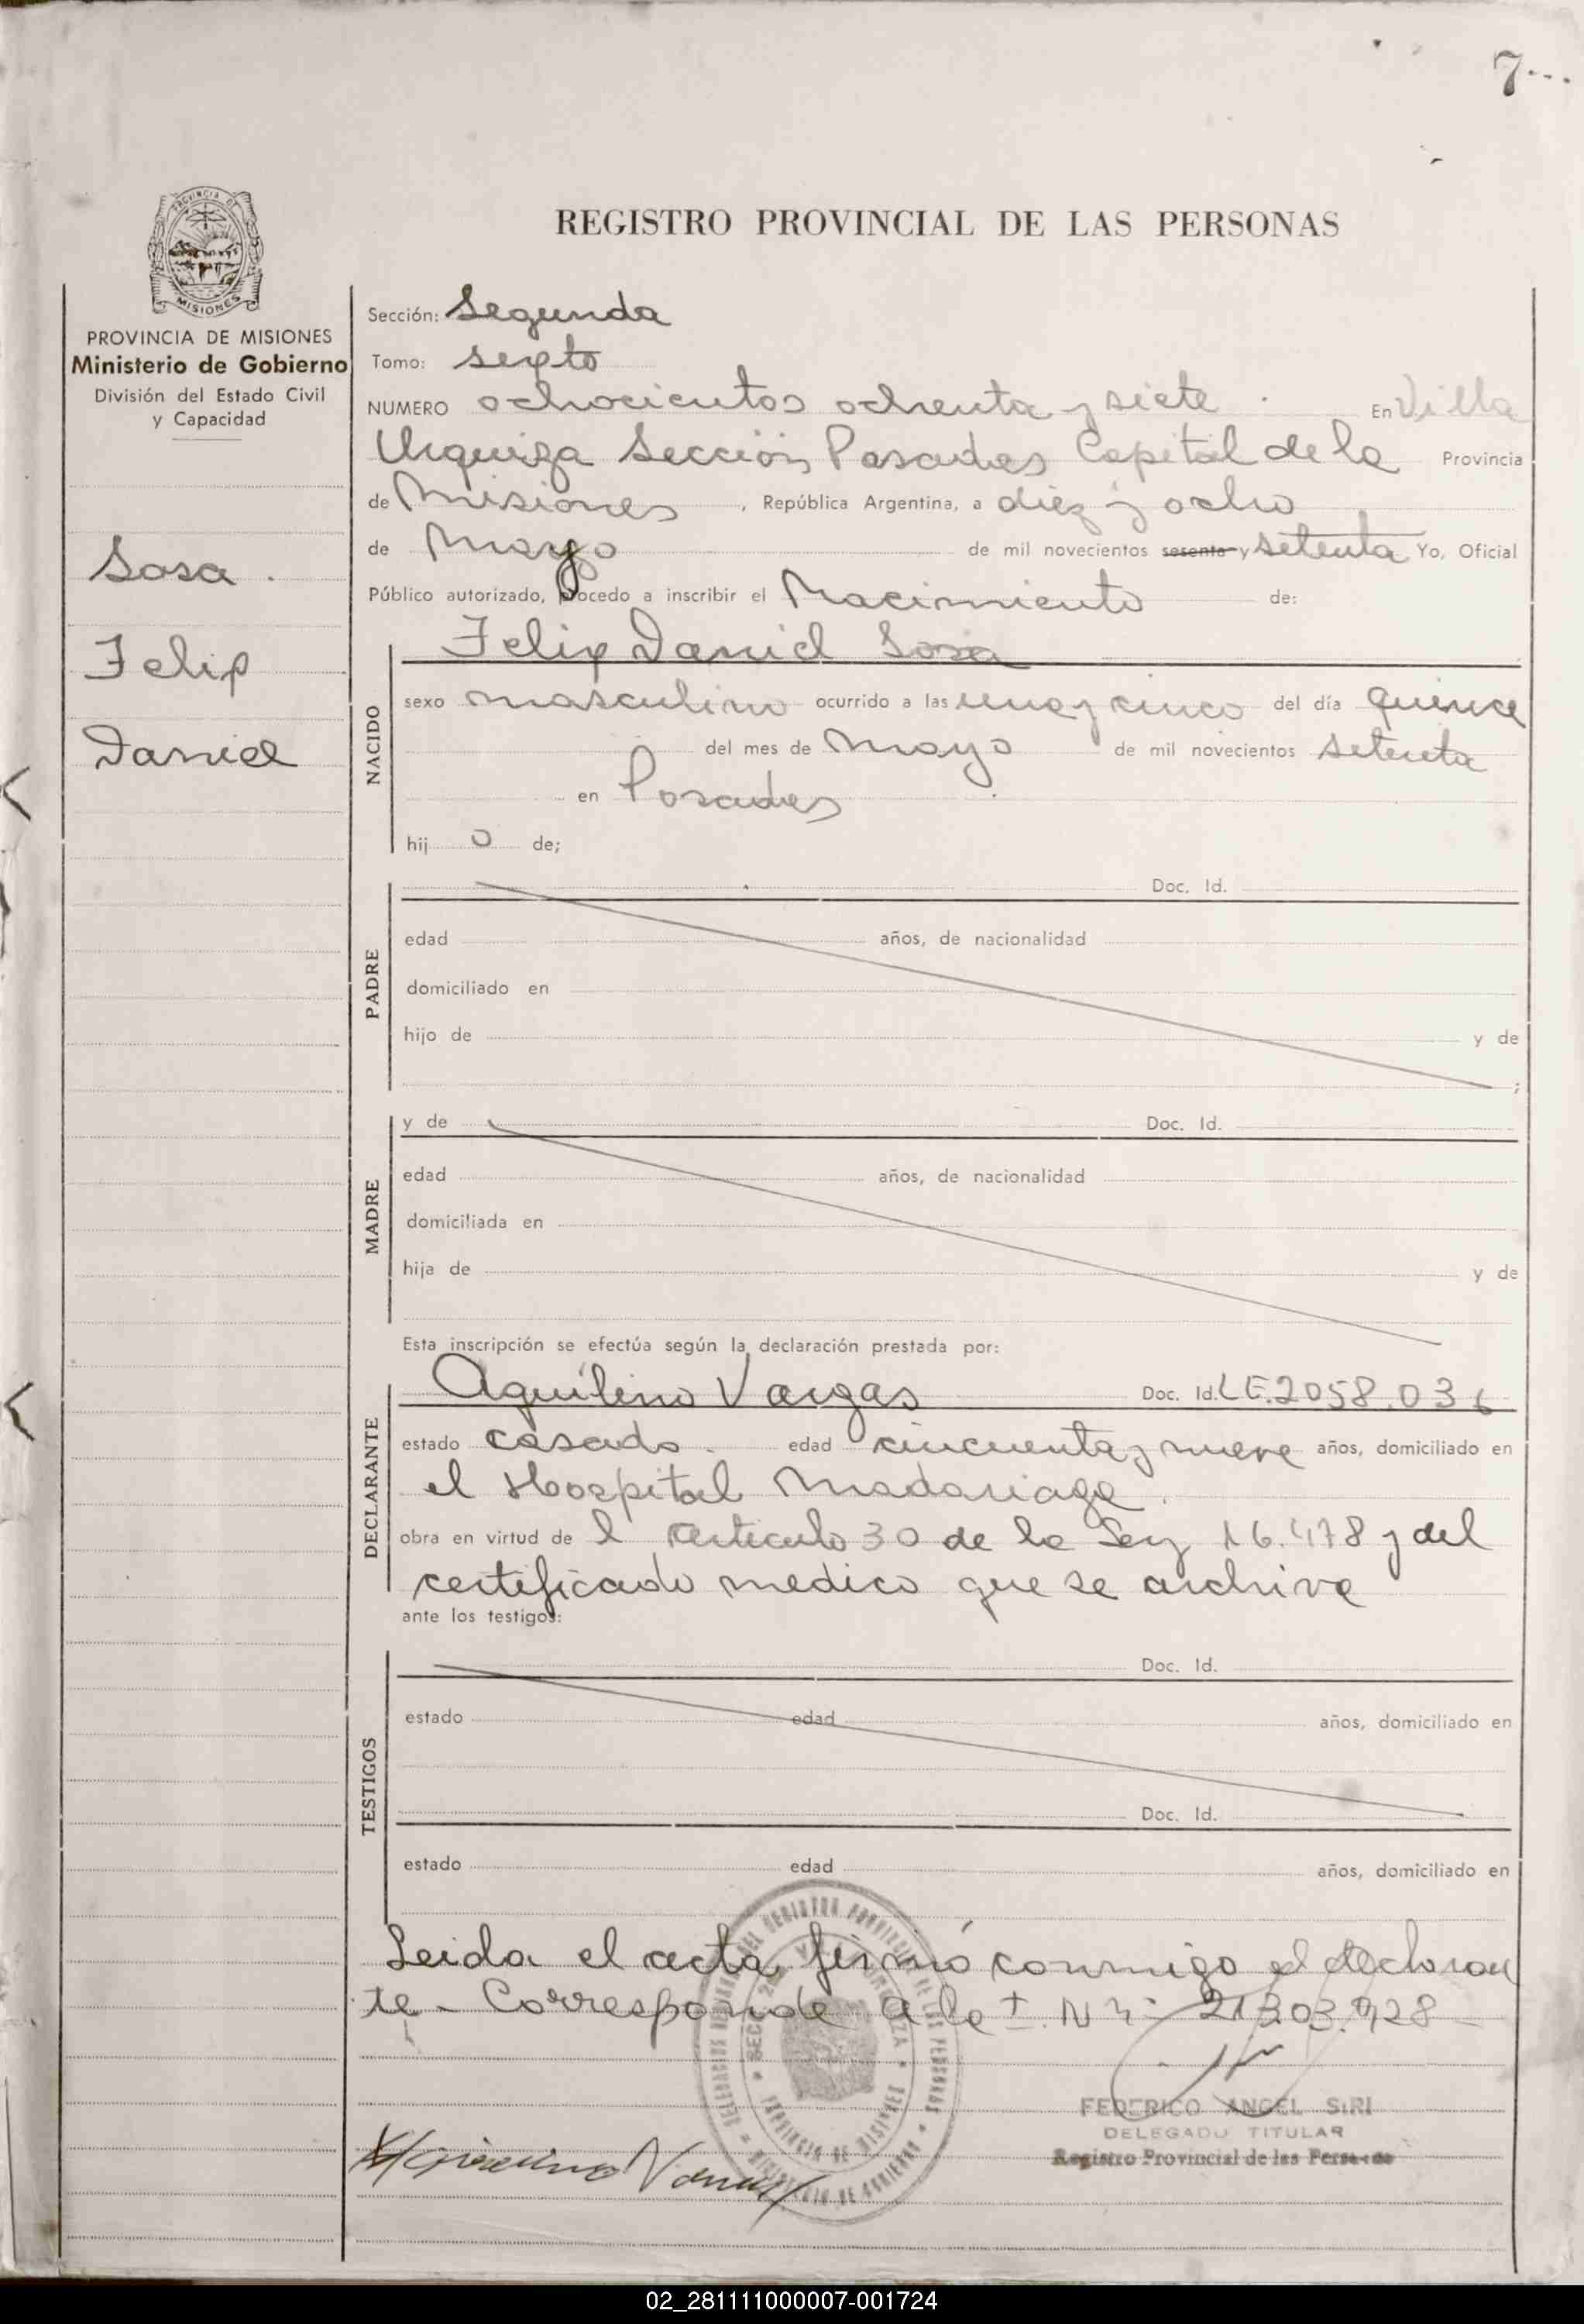 7
PROVINCIA DE MISIONES
Ministerio de Gobierno
División del Estado Civil
y Capacidad
Sosa.
Felix
Daniel
REGISTRO PROVINCIAL DE LAS PERSONAS
Sección: Segunda
Tomo: sexto
NUMERO ochocientos ochenta y siete. En Villa
Urquiza Sección Posadas Capital de la Provincia
de Misiones, República Argentina, a diez y ocho
de Mayo de mil novecientos sesenta y setenta Yo, Oficial
Público autorizado, procedo a inscribir el Nacimiento de:
NACIDO
Felix Daniel Sosa
sexo masculino ocurrido a las una y cinco del día quince
del mes de Mayo de mil novecientos setenta
en Posadas
hij o de;
PADRE
Doc. Id.
edad años, de nacionalidad
domiciliado en
hijo de y de
;
MADRE
y de Doc. Id.
edad años, de nacionalidad
domiciliada en
hija de y de
Esta inscripción se efectúa según la declaración prestada por:
DECLARANTE
Aquilino Vargas Doc. Id. LE.2058.036
estado casado. edad cincuenta y nueve años, domiciliado en
el Hospital Madariaga.
obra en virtud de l Articulo 30 de la Ley 16.478 y del
certificado medico que se archiva
ante los testigos:
TESTIGOS
Doc. Id.
estado edad años, domiciliado en
Doc. Id.
estado edad años, domiciliado en
Leida el acta, firmó conmigo el declaran
te - Corresponde a la I. Nº 21.303.928
FEDERICO ANGEL SIRI
DELEGADO TITULAR
Registro Provincial de las Personas
02_281111000007-001724